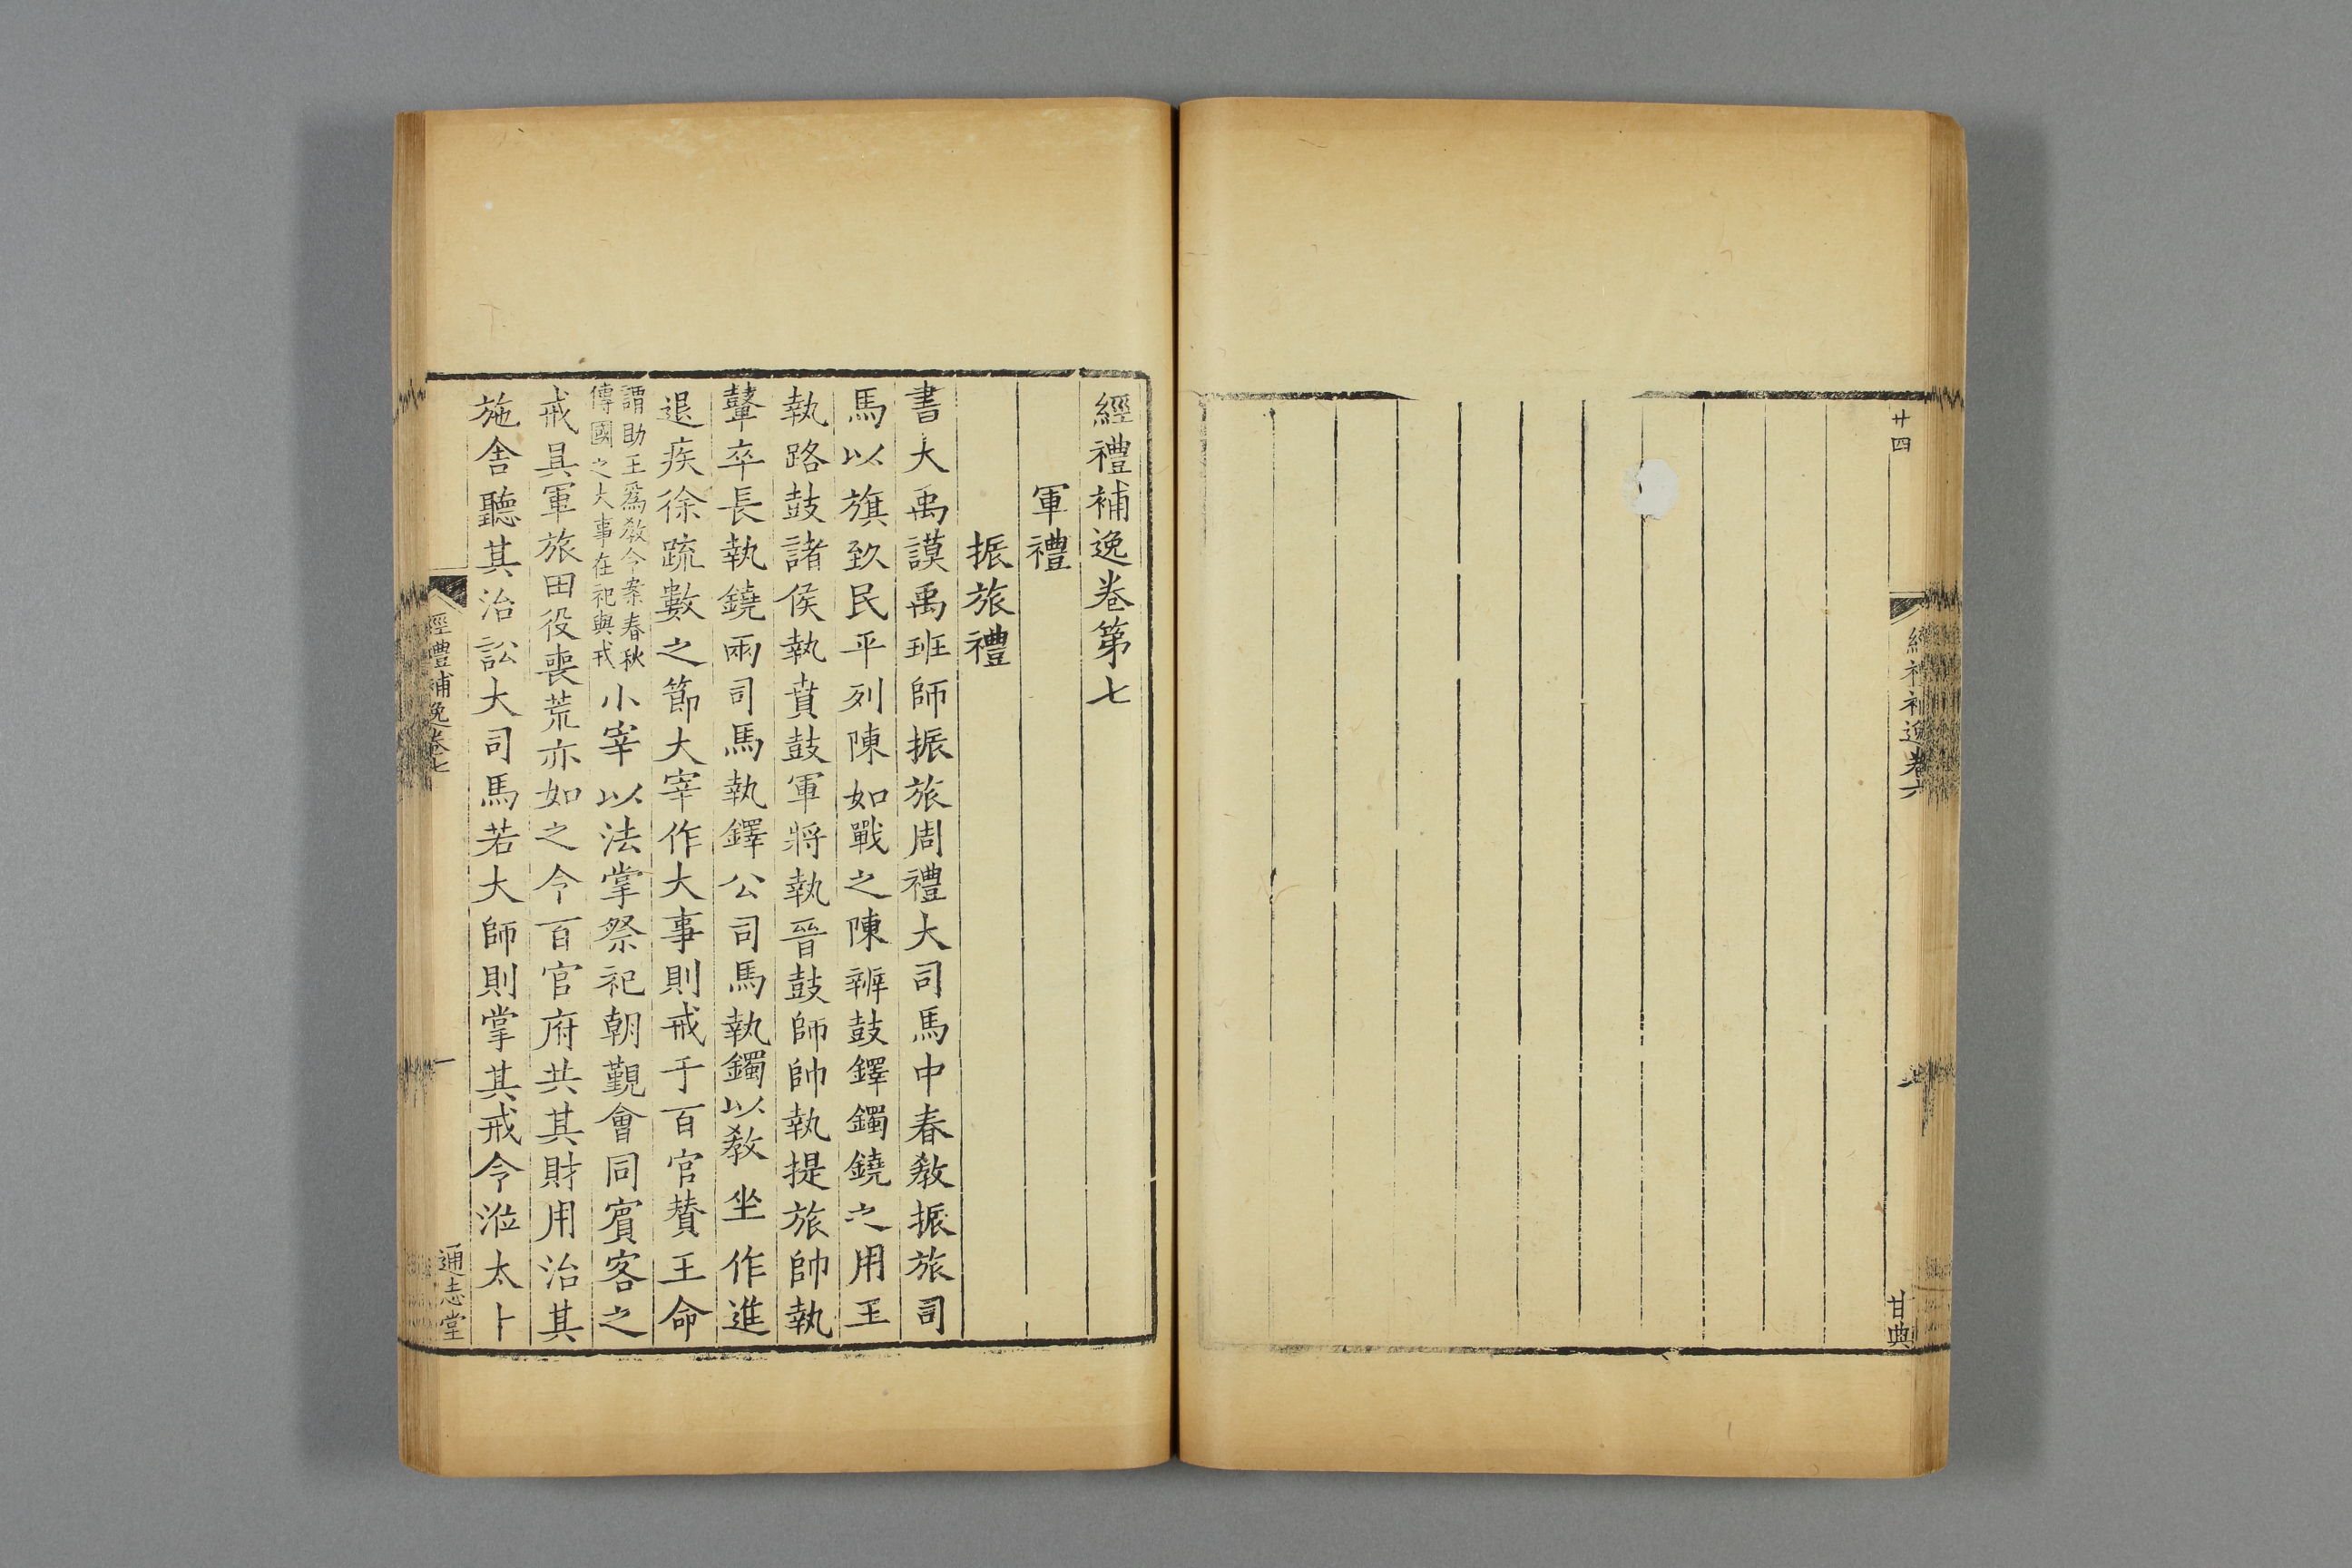 廿四
經禮補逸卷六
甘典
經禮補逸卷第七
軍禮
振旅禮
書大禹謨禹班師振旅周禮大司馬中春敎振旅司
馬以旗致民平列陳如戰之陳辨鼓鐸鐲鐃之用王
執路鼓諸侯執賁鼓軍將執晉鼓師帥執提旅帥執
鼙卒長執鐃兩司馬執鐸公司馬執鐲以敎坐作進
退疾徐疏數之節大宰作大事則戒于百官贊王命
謂助王爲敎令案春秋
傳國之大事在祀與戎
小宰以法掌祭祀朝覲會同賓客之
戒具軍旅田役喪荒亦如之令百官府共其財用治其
施舍聽其治訟大司馬若大師則掌其戒令涖太卜
經禮補逸卷七
一
通志堂